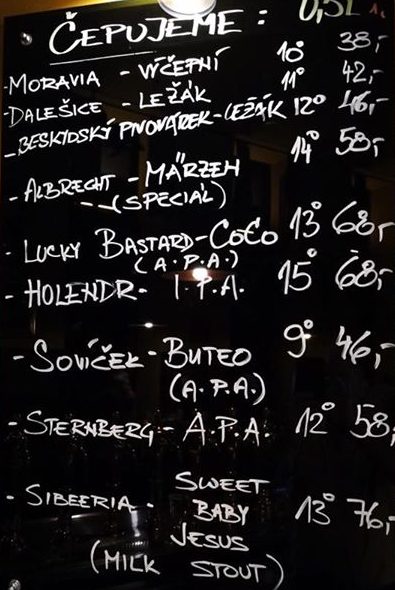 ČEPUJEME: 0,5L
-MORAVIA - VÝČEPNÍ 10° 38,-
-DALEŠICE - LEŽÁK 11° 42,-
-BESKYDSKÝ PIVOVÁREK-LEŽÁK 12° 46,-
-ALBRECHT - MÄRZEN 14° 58,-
(SPECIÁL)
- LUCKY BASTARD-COCO 13° 68,-
(A.P.A.)
- HOLENDR- I.P.A. 15° 68,-
- SOVÍČEK - BUTEO 9° 46,-
(A.P.A.)
- STERNBERG - A.P.A. 12° 58,-
- SIBEERIA - SWEET
BABY 13° 76,-
JESUS
(MILK STOUT)